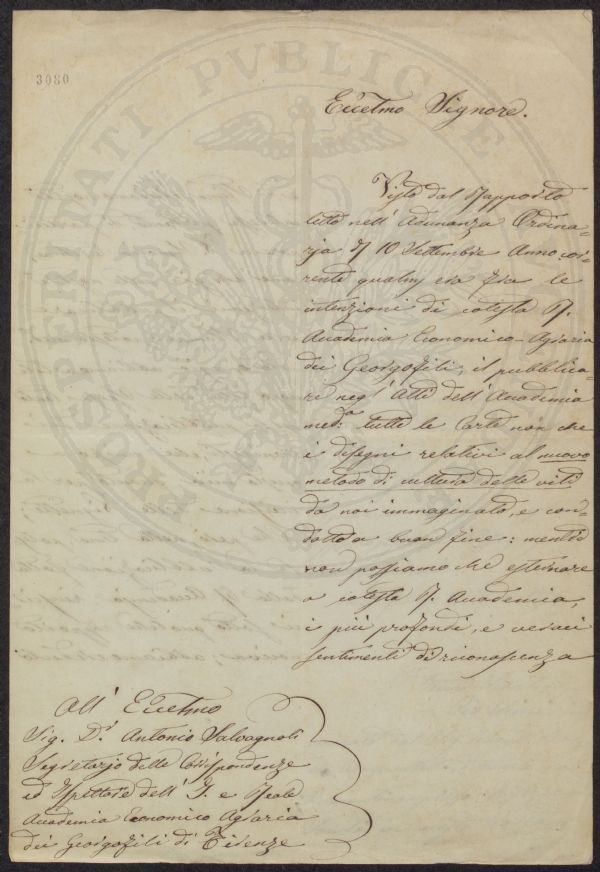 3080
PROSPERITATI PVBLICAE
Eccelmo Signore.
Visto dal Rapporto
letto nell' Adunanza Ordina-
ria di 10 Settembre Anno cor-
rente qualm̃ era fra le
intenzioni di cotesta R.
Accademia Economico-Agraria
dei Georgofili, il pubblica-
re negl' Atti dell' Accademia
medᵃ: tutte le Carte non che
i disegni relativi al nuovo
metodo di cultura delle viti
da noi immaginato, e con-
dotto a buon fine: mentre
non possiamo che esternare
a cotesta R. Accademia,
i più profondi, e veraci
sentimenti di riconoscenza
All' Eccelmo
Sig. Dʳ. Antonio Salvagnoli
Segretario delle Corrispondenze
ed Ispettore dell' I. e Reale
Accademia Economico Agraria
dei Georgofili di Firenze